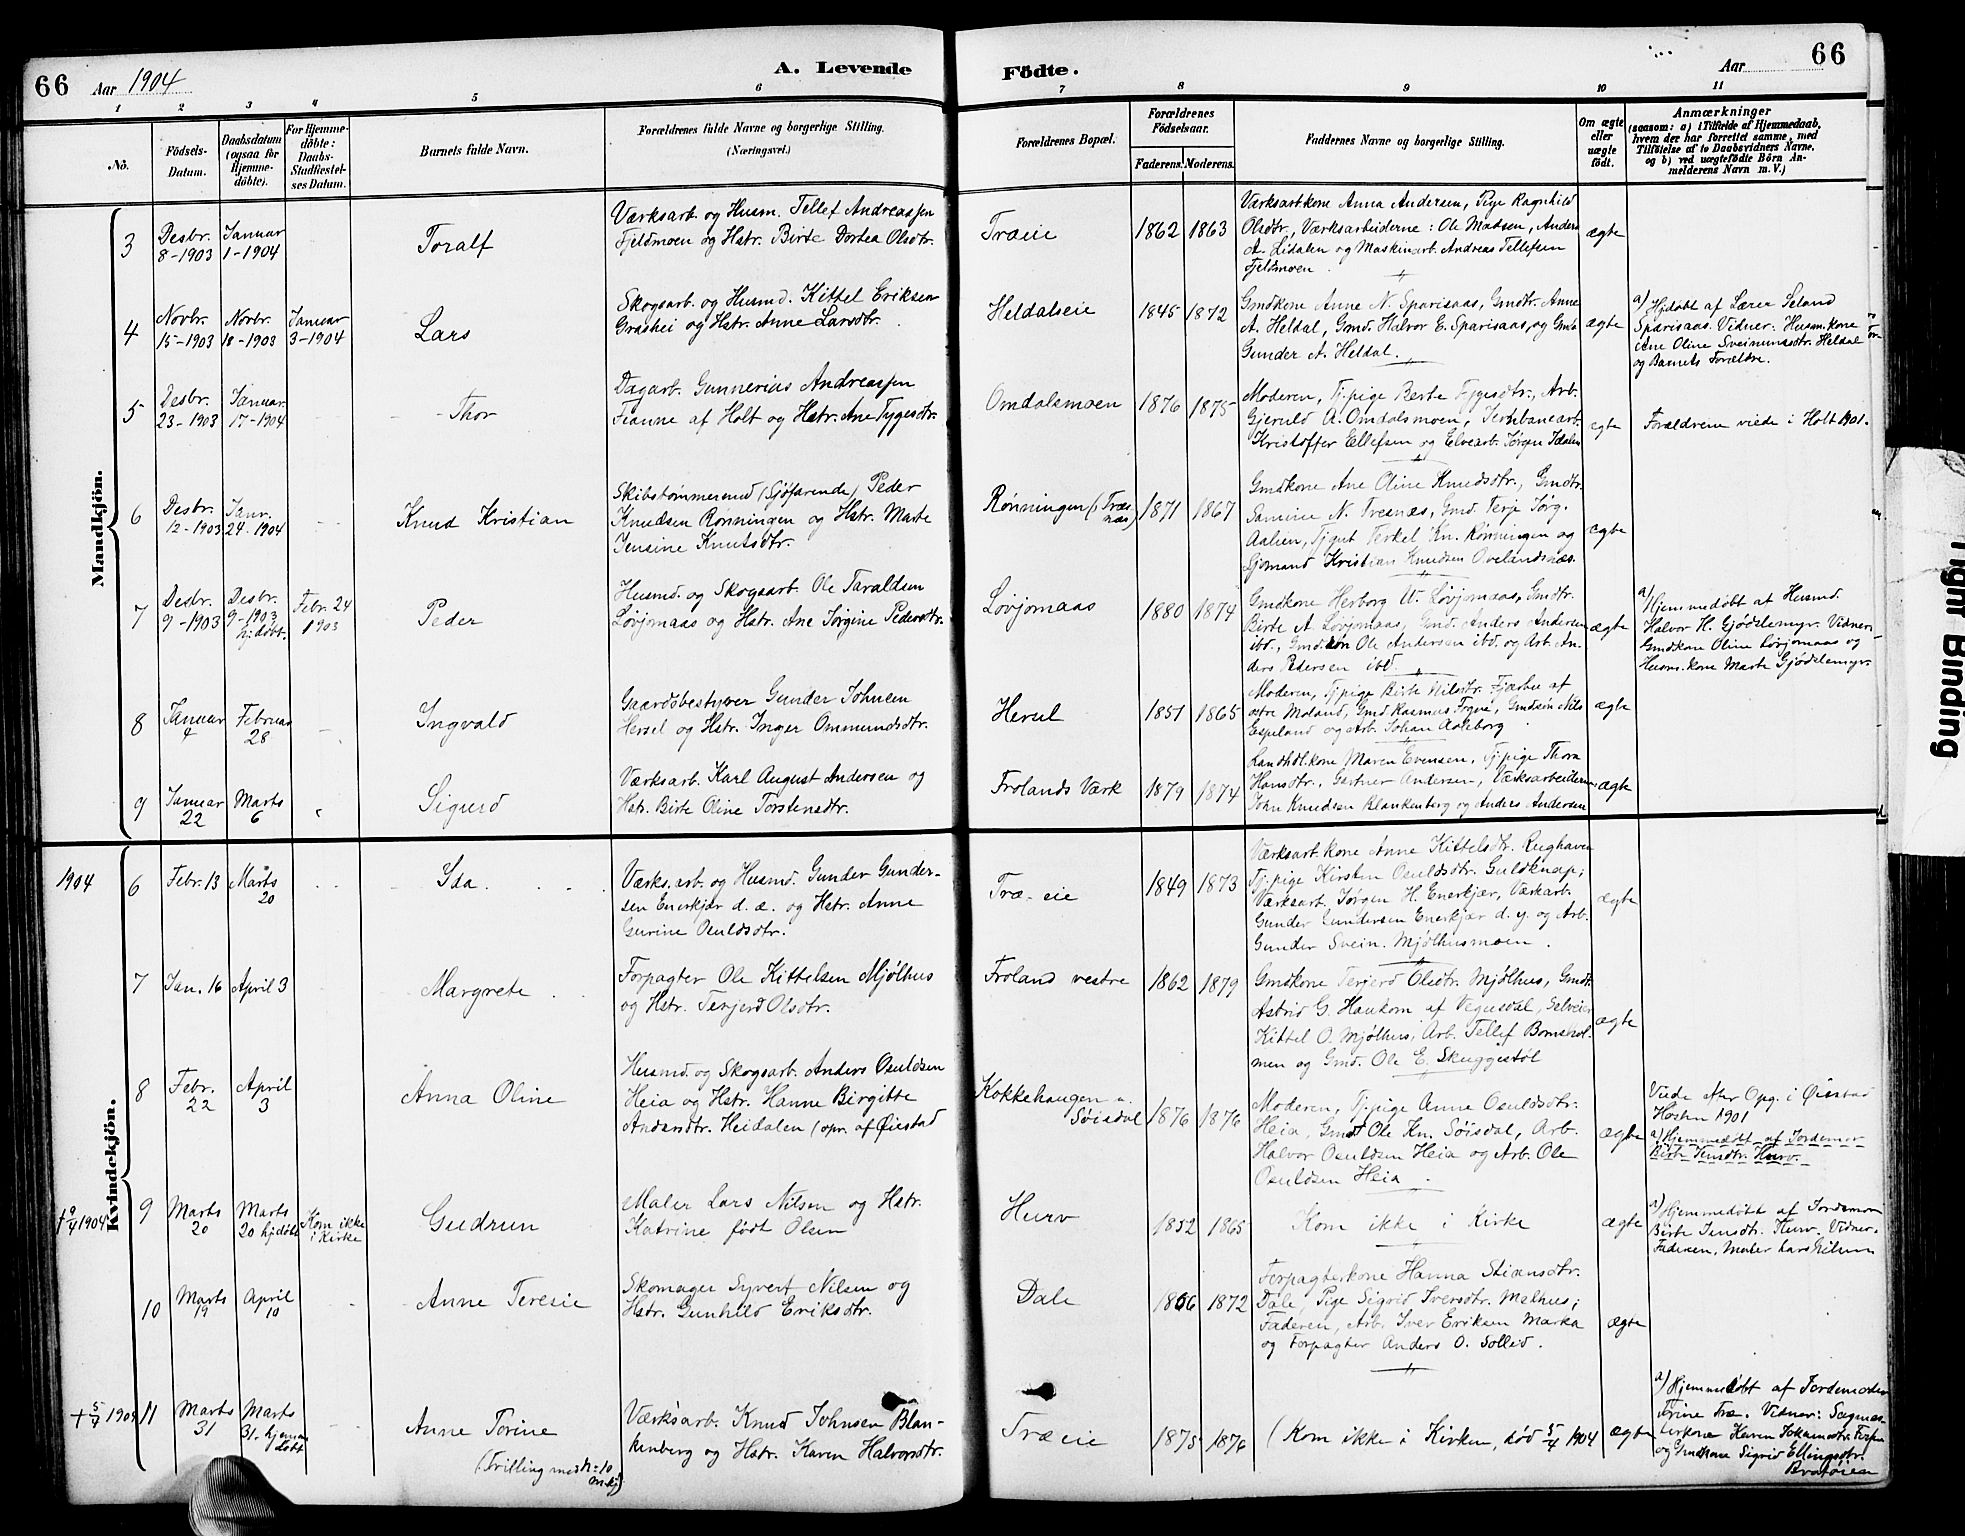 66 Aar 1904 A. Levende Födte. Aar 66
1 2 3 4 5 6 7 8 9 10 11
No.
Födsels-
Datum.
Daabsdatum
(ogsaa for
Hjemme-
döbte).
For Hjemme-
döbte:
Daabs-
Stadfæstel-
ses Datum.
Barnets fulde Navn.
Forældrenes fulde Navne og borgerlige Stilling.
(Næringsvei.)
Forældrenes Bopæl.
Forældrenes
Födselsaar.
Faderens. Moderens.
Faddernes Navne og borgerlige Stilling.
Om ægte
eller
uægte
født.
Anmærkninger
(saasom: a) i Tilfælde af Hjemmedaab,
hvem der har forrettet samme, med
Tilföielse af to Daabsvidners Navne,
og b) ved uægtefödte Börn An-
melderens Navn m. V.)
Mandkjön.
3
Desbr.
8-1903
Januar
1-1904
Toralf
Værksarb. og Husm. Tellef Andreassen
Fjeldmoen og Hstr. Birte Dortea Olsdtr.
Træeie
1862 1863
Værksarb.kone Anna Andersen, Pige Ragnhild
Olsdtr., Værksarbeiderne: Ole Madsen, Anders
A. Lidalen og Maskinarb. Andreas Tellefsen
Fjeldmoen
ægte
4
Novbr.
15-1903
Novbr.
18-1903
Januar
3-1904
Lars
Skogsarb. og Husmd. Kittel Eriksen
Grashei og Hstr. Anne Larsdtr.
Heldalseie
1845 1872
Gmdkone Anne N. Sparisaas, Gmdtr. Anne
A. Heldal, Gmd. Halvor E. Sparisaas, og Gmd.
Gunder A. Heldal.
ægte
a) Hjdøbt af Lærer Seland
Sparisaas. Vidner: Husm.kone
Ane Oline Sveinungsdtr. Heldal
og Barnets Forældre.
5
Desbr.
23-1903
Januar
17-1904
Thor
Dagarb. Gunnerius Andreassen
Fianne af Holt og Hstr. Ane Tygesdtr.
Omdalsmoen
1876 1875
Moderen, Tj.pige Berte Tygesdtr., Arb.
Gjeruld A. Omdalsmoen, Jernbanearb.
Kristoffer Ellefsen og Elvearb. Jørgen Idalen
ægte
Forældrene viede i Holt 1901.
6
Desbr.
12-1903
Janr.
24-1904
Knud Kristian
Skibstømmermd (Sjøfarende) Peder
Knudsen Rønningen og Hstr. Marte
Jensine Knutsdtr.
Rønningen (Træs-
næs)
1871 1867
Gmdkone Ane Oline Knudsdtr., Gmdtr.
Samine N. Tresnæs, Gmd. Terje Jørg.
Aalien, Tj.gut Terkel Kn. Rønningen og
Sjømand Kristian Knudsen Ovelandsnæs.
ægte
7
Desbr.
9-1903
Desbr.
9-1903
hjdøbt.
Febr. 24
1903
Peder
Husmd. og Skogsarb. Ole Taraldsen
Løvjomaas og Hstr. Ane Jørgine Pedersdtr.
Løvjomaas
1880 1874
Gmdkone Herborg W. Løvjomaas, Gmdtr.
Birte A Løvjomaas, Gmd. Anders Andersen
ibd., Gmd.søn Ole Andersen ibd. og Arb. An-
ders Pedersen ibd.
ægte
a) Hjemmedøbt af Husmd.
Halvor H. Gjødslemyr. Vidner:
Gmdkone Oline Løvjomaas og
Husm.kone Marte Gjødslemyr.
8
Januar
4
Februar
28
Ingvald
Gaardsbestyrer Gunder Johnsen
Hersel og Hstr. Inger Ommundsdtr.
Hersel
1851 1865
Moderen, Tj.pige Birte Nilsdtr. Fjærbu af
østre Moland, Gmd Rasmus Frøyne, Gmdsøn Nils
Espeland og Arb. Johan Aalsborg
ægte
9
Januar
22
Marts
6
Sigurd
Værksarb. Karl August Andersen og
Hstr. Birte Oline Torstensdtr.
Frolands Værk
1879 1874
Landhdl.kone Maren Evensen, Tj.pige Thora
Hansdtr., Gartner Andersen, Værksarbeiderne
John Knudsen Blankenberg og Anders Andersen
ægte
Kvindekjön.
1904
6
Febr. 13
Marts
20
Ida
Værks.arb. og Husmd. Gunder Gunder-
sen Enerkjær d. æ. og Hstr. Anne
Gurine Osuldsdtr.
Træ-eie
1849 1873
Værksarb.kone Anne Kittelsdtr. Rughaven
Tj.pige Kirsten Osuldsdtr. Guldknap;
Værksarb. Jørgen H. Enerkjær, Værkarb.
Gunder Gundersen Enerkjær d. y. og Arb.
Gunder Svein. Mjølhusmoen.
ægte
7
Jan. 16
April 3
Margrete
Forpagter Ole Kittelsen Mjølhus
og Hstr. Terjerd Olsdtr.
Froland vestre
1862 1879
Gmdkone Terjerd Olsdtr. Mjølhus, Gmdtr.
Astrid G. Haukom af Vegusdal, Selveier
Kittel O. Mjølhus, Arb. Tellef Bomshol-
men og Gmd. Ole E. Skuggestøl
ægte
8
Febr.
22
April
3
Anna Oline
Husmd. og Skogsarb. Anders Osuldsen
Heia og Hstr. Hanne Birgitte
Andersdtr. Heidalen (opr. af Øiestad
Kokkehaugen u.
Søisdal
1876 1876
Moderen, Tj.pige Anne Osuldsdtr.
Heia, Gmd Ole Kn. Søisdal, Arb.
Halvor Osuldsen Heia og Arb. Ole
Osuldsen Heia.
ægte
Viede efter Opg. i Øiestad
Høsten 1901
a) Hjemmedøbt af Jordemor
Birte Jensdtr. Hurv.
† 9/4 1904
9
Marts
20
Marts
20 hjdøbt
Kom ikke
i Kirke
Gudrun
Maler Lars Nilsen og Hstr.
Katrine født Olsen
Hurv
1852 1865
Kom ikke i Kirke
ægte
a) Hjemmedøbt af Jordemor
Birte Jensdtr. Hurv. Vidner:
Faderen, Maler Lars Nilsen
10
Marts
19
April
10
Anne Teresie
Skomager Syvert Nilsen og
Hstr. Gunhild Eriksdtr.
Dale
1866 1872
Forpagterkone Hanna Stiansdtr.
Dale, Pige Sigrid Iversdtr. Mølhus;
Faderen, Arb. Iver Eriksen Marka
og Forpagter Anders O. Sollid.
ægte
† 5/4 1904
11
Marts
31
Marts
31. hjemme-
døbt
Anne Torine
(Trilling med N: 10
M.kj)
Værksarb. Knud Johnsen Blan-
kenberg og Hstr. Karen Halvorsdtr.
Træeie
1875 1876
(Kom ikke i Kirken, død 5/4 1904
ægte
a) Hjemmedøbt af Jordemoder
Torine Træ. Vidner: Sagmes-
terkone Karen Johannsdtr.
og Gmdkone Sigrid Ellingsdtr.
Bratøien
Tight Binding